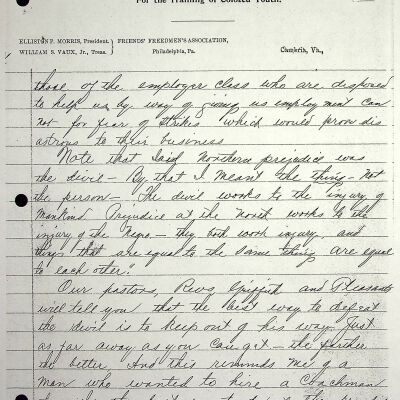 For the Training of Colored Youth.
ELLISTON P. MORRIS, President. FRIENDS' FREEDMEN'S ASSOCIATION,
WILLIAM S. VAUX, Jr., Treas. Philadelphia, Pa. Cambria, Va.,
those of the employer class who are disposed
to help us by way of giving us employment can
not for fear of strikes which would prove dis
astrous to their business
Note that I said Northern prejudice was
the devil - By that I meant the thing - not
the person - The devil works to the injury of
mankind Prejudice at the North works to the
injury of the Negro - they both work injury and
things "that are equal to the same thing are equal
to each other."
Our pastors, Revs Griffith and Pleasants
will tell you that the best way to defeat
the devil is to keep out of his way. Just
as far away as you can get - the farther
the better. And this reminds me of a
man who wanted to hire a coachman